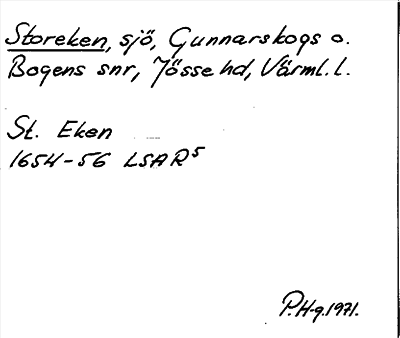 Storeken, sjö, Gunnarskogs o.
Bogens snr, Jösse hd, Värml. l.
St. Eken
1654-56 LSAR⁵
P.H-g.1971.